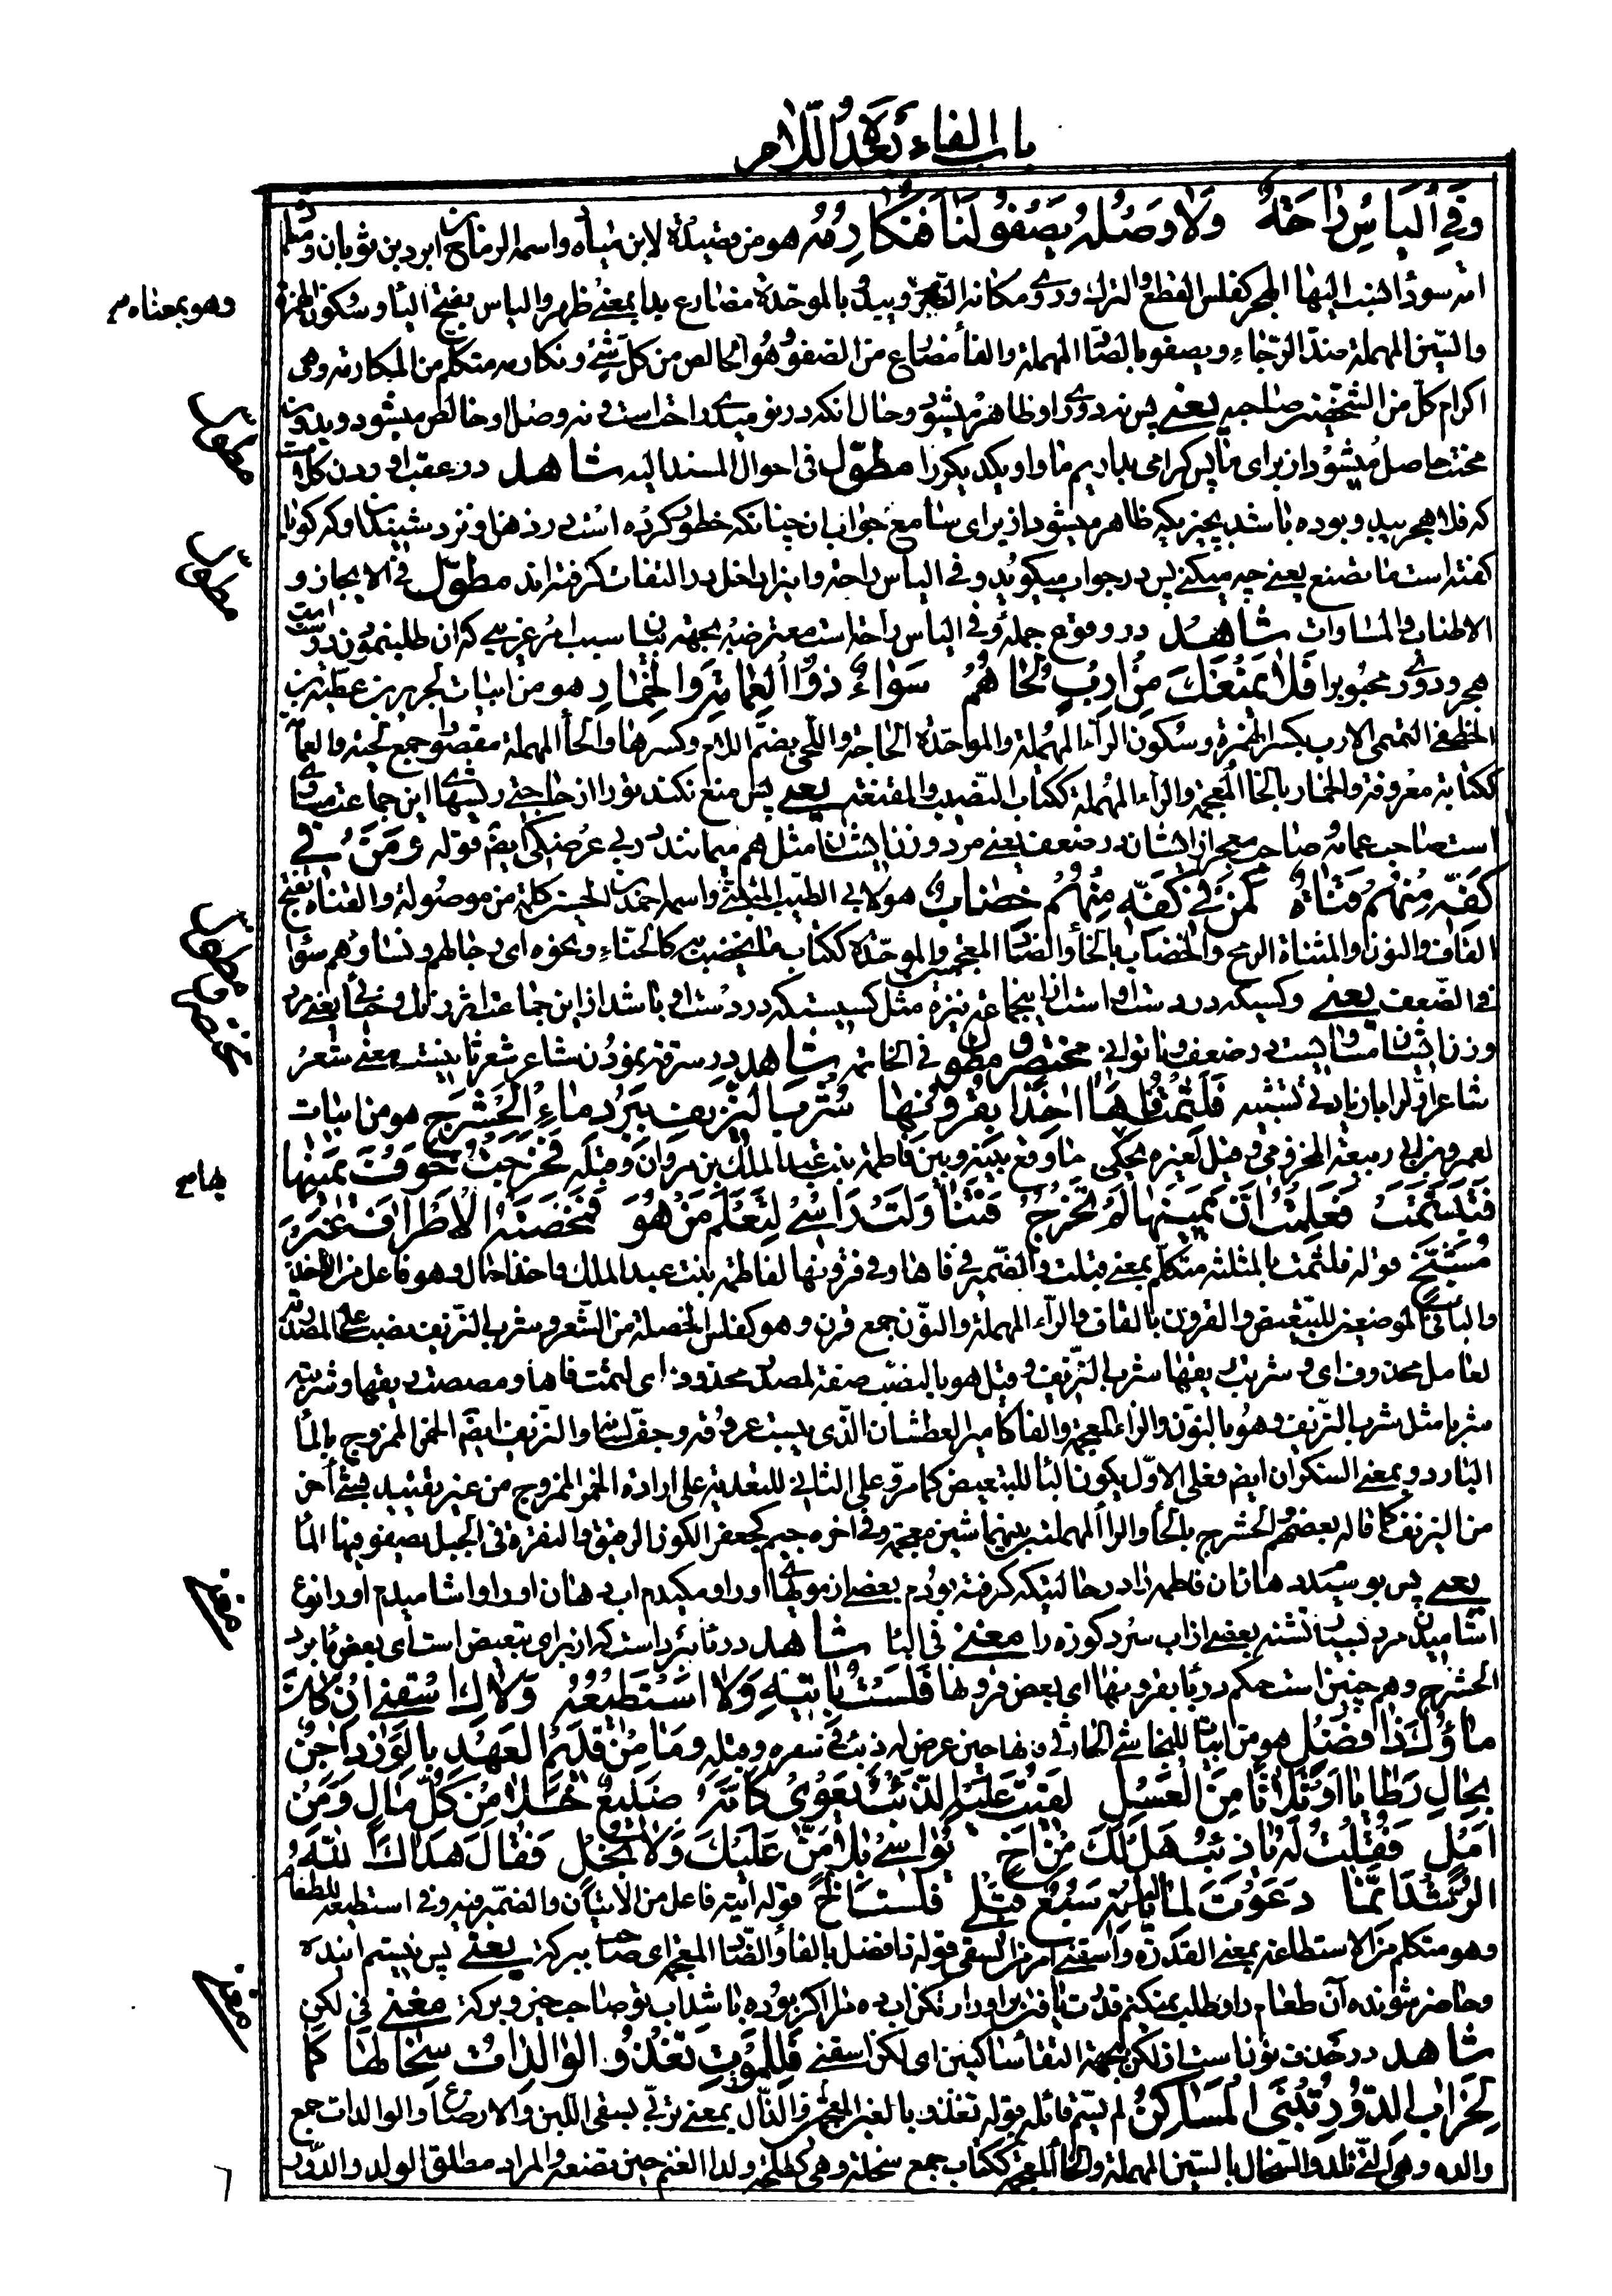 باب الفاء بعده اللام
وَفِي الْيَأسِ رَاحَةٌ وَلَا وَصْلُهُ يَصْفُو لَنَا فَنُكَارِمُهُ هو من قصيدة لابن ميادة واسمه الرماح بن ابرد بن ثوبان و قيل
امه سوداء نسب اليها الهجر كفلس القطع والترك ودوى ومكانه القبح ويبدو بالموحدة مضارع بدا بمعنى ظهر والياس بفتح الياء وسكون الهمزة
وهو بمعناه
والسين المهملة ضد الرجاء ويصفو بالصاد المهملة والفاء مضارع من الصفو وهو الخالص من كل شئ ونكارمه متكلم من المكارمة وهى
اكرام كل من الشخصين صاحبه يعنى پس نه دورى او ظاهر ميشود وحال انكه در نوميدى راحت است و نه وصل او خالص ميشود و بدون
مطول
محنت حاصل ميشود از براى ما پس كرامى بداريم ما و او يكديكر را مطوّل فى احوال المسند اليه شاهد در عقب اوردن كلام است
كه فلا هجره يبدو بوده باشد بچيزيكه ظاهر ميشود از براى سامع جواب ان چنانكه خطور كرده است در ذهن او نزد شنيدن او كه كويا
كفته است ما تصنع يعنى چه ميكنى پس در جواب ميكويد وفى الياس راحة و اينرا داخل در التفات كرفته اند مطوّل فى الايجاز و
مطول
الاطناب والمساوات شاهد در وقوع جمله وفى الياس راحة است معترضه بجهة بيان سبب امر غريبى كه ان طلب نمودن دوست
هجر و دورى محبوبرا فَلَا يَمْنَعْكَ مِنْ اِرْبٍ لُحَاهُمْ سَوَاءٌ ذُو الْعِمَامَةِ وَالْخِمَارِ هو من ابيات لجرير بن عطية بن
الخطفى التميمى الارب بكسر الهمزة وسكون الراء المهملة والموحدة الحاجة واللحى بضم اللام وكسرها والحاء المهملة مقصورا جمع لحية والعمامة
ككتابة معروفة والخمار بالخاء المعجمة والراء المهملة ككتاب النصيف والمقنعة يعنى پس منع نكند تو را از حاجتى ريشهاى اين جماعت مساوى
است صاحب عمامه و صاحب معجر از ايشان در ضعف يعنى مرد و زن ايشان مثل هم ميمانند در بى عرضكى ايضا قوله وَمَنْ فِي
كَفِّهِ مِنْهُمْ قَنَاةٌ كَمَنْ فِي كَفِّهِ مِنْهُمْ خِضَابٌ هو لابى الطيب المتنبى واسمه احمد بن الحسين كلمة من موصولة والقناة بفتح
القاف والنون والمثناة الرمح والخضاب بالخاء والضاد المعجمتين والموحدة ككتاب ما يختضب به كالحناء ونحوه اى رجالهم ونساؤهم سواء
مختصر و مطول
فى الضعف يعنى وكسيكه در دست او است از اينجماعت نيزه مثل كسيستكه در دست او باشد از اين جماعت اثر رنك و حنائى يعنى مرد
و زن ايشان مساويست در ضعف و ناتوانى مختصر و مطول فى الخاتمه شاهد در سرقه نمودن شاعر شعر ثانيست معنى شعر
شاعر اول را با زيادتى تشبيه فَلَثَمْتُ فَاهَا آخِذًا بِقُرُونِهَا شُرْبَ النَّزِيفِ بِبَرْدِ مَاءِ الْحَشْرَجِ هو من ابيات
لعمرو بن ابى ربيعة المخزومى وقيل لغيره يحكى ما وقع بينه وبين فاطمة بنت عبد الملك بن مروان وقبله فَخَرَجْتُ خَوْفَ يَمِينِهَا
بها
فَتَبَسَّمَتْ فَعَلِمْتُ اَنَّ يَمِينَهَا لَمْ تَخْرُجْ فَتَنَاوَلَتْ رَأْسِي لِتَعْلَمَ مَنْ هُوَ بِمُخَضَّبِ الْاَطْرَافِ غَيْرَ
مُشَنَّجِ قوله فلثمت بالمثلثة متكلم بمعنى قبلت والضمير فى فاها وفى قرونها لفاطمة بنت عبد الملك و اخذا حال وهو فاعل من الاخذ
والباء فى الموضعين للتبعيض والقرون بالقاف والراء المهملة والنون جمع قرن وهو كفلس الخصلة من الشعر وشرب النزيف نصب على المصدرية
لعامل محذوف اى شربت ريقها شرب النزيف وقيل هو بالنصب صفة لمصدر محذوف اى لثمت فاها ومصصت ريقها وشربته
شربا مثل شرب النزيف وهو بالنون والزاء المعجمة والفاء كامير العطشان الذى يبست عروقه وجف لسانه والنزيف ايضا الخمر الممزوج بالماء
البارد وبمعنى السكران ايضا فعلى الاول يكون الباء للتبعيض كما مر وعلى الثانى للتعدية على ارادة الخمر الممزوج من غير تقييد بشئ اخر
من النزيف كما قاله بعضهم والحشرج بالحاء والراء المهملتين بينهما شين معجمة وفى اخره جيم كجعفر الكوز الرقيق والنقرة فى الجبل يصفو فيها الماء
يعنى پس بوسيدم دهان ان فاطمه را در حالتيكه كرفته بودم بعضى از موى او را و مكيدم اب دهان او را و اشاميدم او را نوع
مغنى
اشاميدن مرد بسيار تشنه بعضى از اب سرد كوزه را مغنى فى الباء شاهد در باء ببرد است كه از براى تبعيض است اى بعض ماء برد
الحشرج و هم چنين است حكم در باء بقرونها اى بعض قرونها فَلَسْتُ بِآتِيهِ وَلَا اَسْتَطِيعُهُ وَلَاكِ اسْقِنِي اِنْ كَانَ
مَاؤُكَ ذَا فَضْلِ هو من ابيات للنجاشى الحارثى قالها حين عرض له ذئب فى سفره وقبله وَمَاءٍ قَدِيمِ الْعَهْدِ بِالْوَرْدِ آجِنٍ
يُخَالُ رُضَابًا اَوْ سُلَافًا مِنَ الْعَسَلِ لَقِيتُ عَلَيْهِ الذِّئْبَ يَعْوِي كَاَنَّهُ ضَلِيعٌ خَلَا مِنْ كُلِّ مَالٍ وَمِنْ
اَهْلِ فَقُلْتُ لَهُ يَا ذِئْبُ هَلْ لَكَ مِنْ اَخٍ يُوَاسِي بِلَا مَنٍّ عَلَيْكَ وَلَا بُخْلِ فَقَالَ هَدَاكَ اللّٰهُ
الرُّشْدِ اِنَّمَا دَعَوْتَ لِمَا لَمْ يَأْتِهِ سَبُعٌ قَبْلِي فلست الخ قوله اتيه فاعل من الاتيان والضمير فيه وفى استطيعه للطعام
وهو متكلم من الاستطاعة بمعنى القدرة واسقنى امر من السقى قوله ذا فضل بالفاء والضاد المعجمة اى صاحب بركة يعنى پس نيستم اينده
و حاضر شونده آن طعام را و طلب نميكنم قدرت يافتن بر او را وليكن اب ده مرا اكر بوده باشد اب تو صاحب خير و بركة مغنى فى لكن
مغنى
شاهد در حذف نون است از لكن بجهة التقاء ساكنين اى لكن اسقنى فَلِلْمَوْتِ تَغْذُو الْوَالِدَاتُ سِخَالَهَا كَمَا
لِخَرَابِ الدُّورِ تُبْنَى الْمَسَاكِنُ لم يسم قائله قوله تغذو بالغين المعجمة والذال بمعنى تربى بسقى اللبن والارضاع والوالدات جمع
والده وهى التى تلد والسخال بالسين المهملة والخاء المعجمة ككتاب جمع سخلة وهى كطلحة ولد الغنم حين تضعه والمراد مطلق الولد والدور